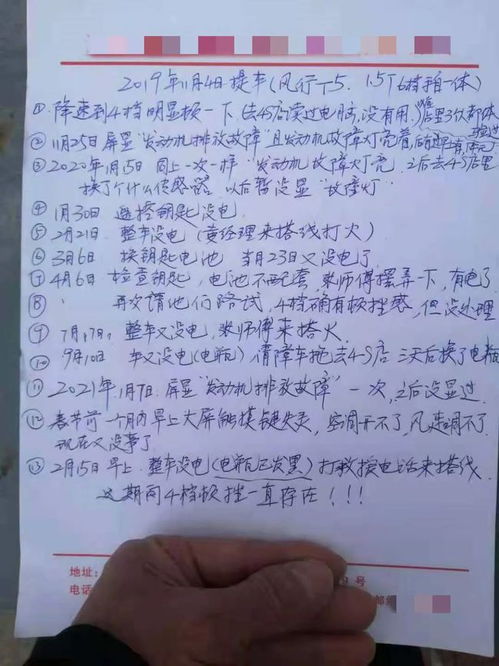 2019年11月4日提车(风行T5. 1.5T 6档手自一体)
① 降速到4档明显顿一下,去4S店读过电脑,没有用.
② 11月25日屏显"发动机排放故障"且发动机故障灯亮着
③ 2020年1月15日同上一次一样"发动机故障灯亮.之后去4S店里
换了个什么传感器.以后暂没显"故障灯"
④ 1月30日 遥控钥匙没电
⑤ 2月21日 整车没电(黄经理来搭线打火)
⑥ 3月6日 换钥匙电池 当月23日又没电了
⑦ 4月6日 检查钥匙,电池不配套,来师傅摆弄一下,有电了.
⑧ 再次请他们路试,4档确有顿挫感,但没处理
⑨ 7月17日:整车又没电,来师傅来搭火.
⑩ 9月10日 车又没电(电瓶)清障车拖去4S店 三天后换了电瓶
⑪ 2021年1月7日.屏显"发动机排放故障"一次,之后没显过.
⑫ 春节前一个月内早上大屏触摸键失灵,空调开不了,风速调不了
现在又没事了
⑬ 2月15日早上.整车没电(电瓶已发黑)打救援电话来搭线.
这期间4档顿挫一直存在!!!
地址:
号
电话
邮编